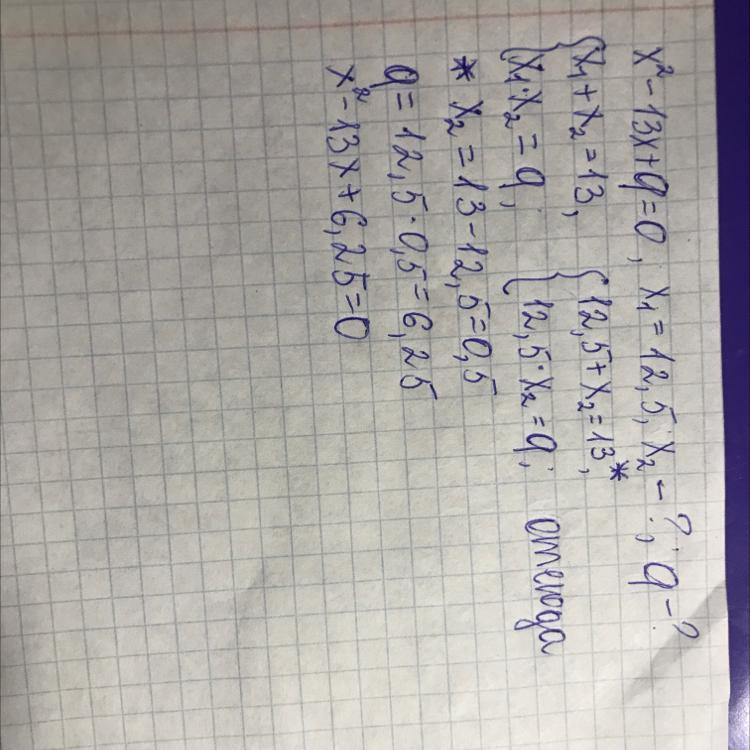 x² - 13x + q = 0; x₁ = 12,5; x₂ - ?; q - ?
{x₁ + x₂ = 13, {12,5 + x₂ = 13, *
{x₁ · x₂ = q; {12,5 · x₂ = q; отсюда
* x₂ = 13 - 12,5 = 0,5
q = 12,5 · 0,5 = 6,25
x² - 13x + 6,25 = 0